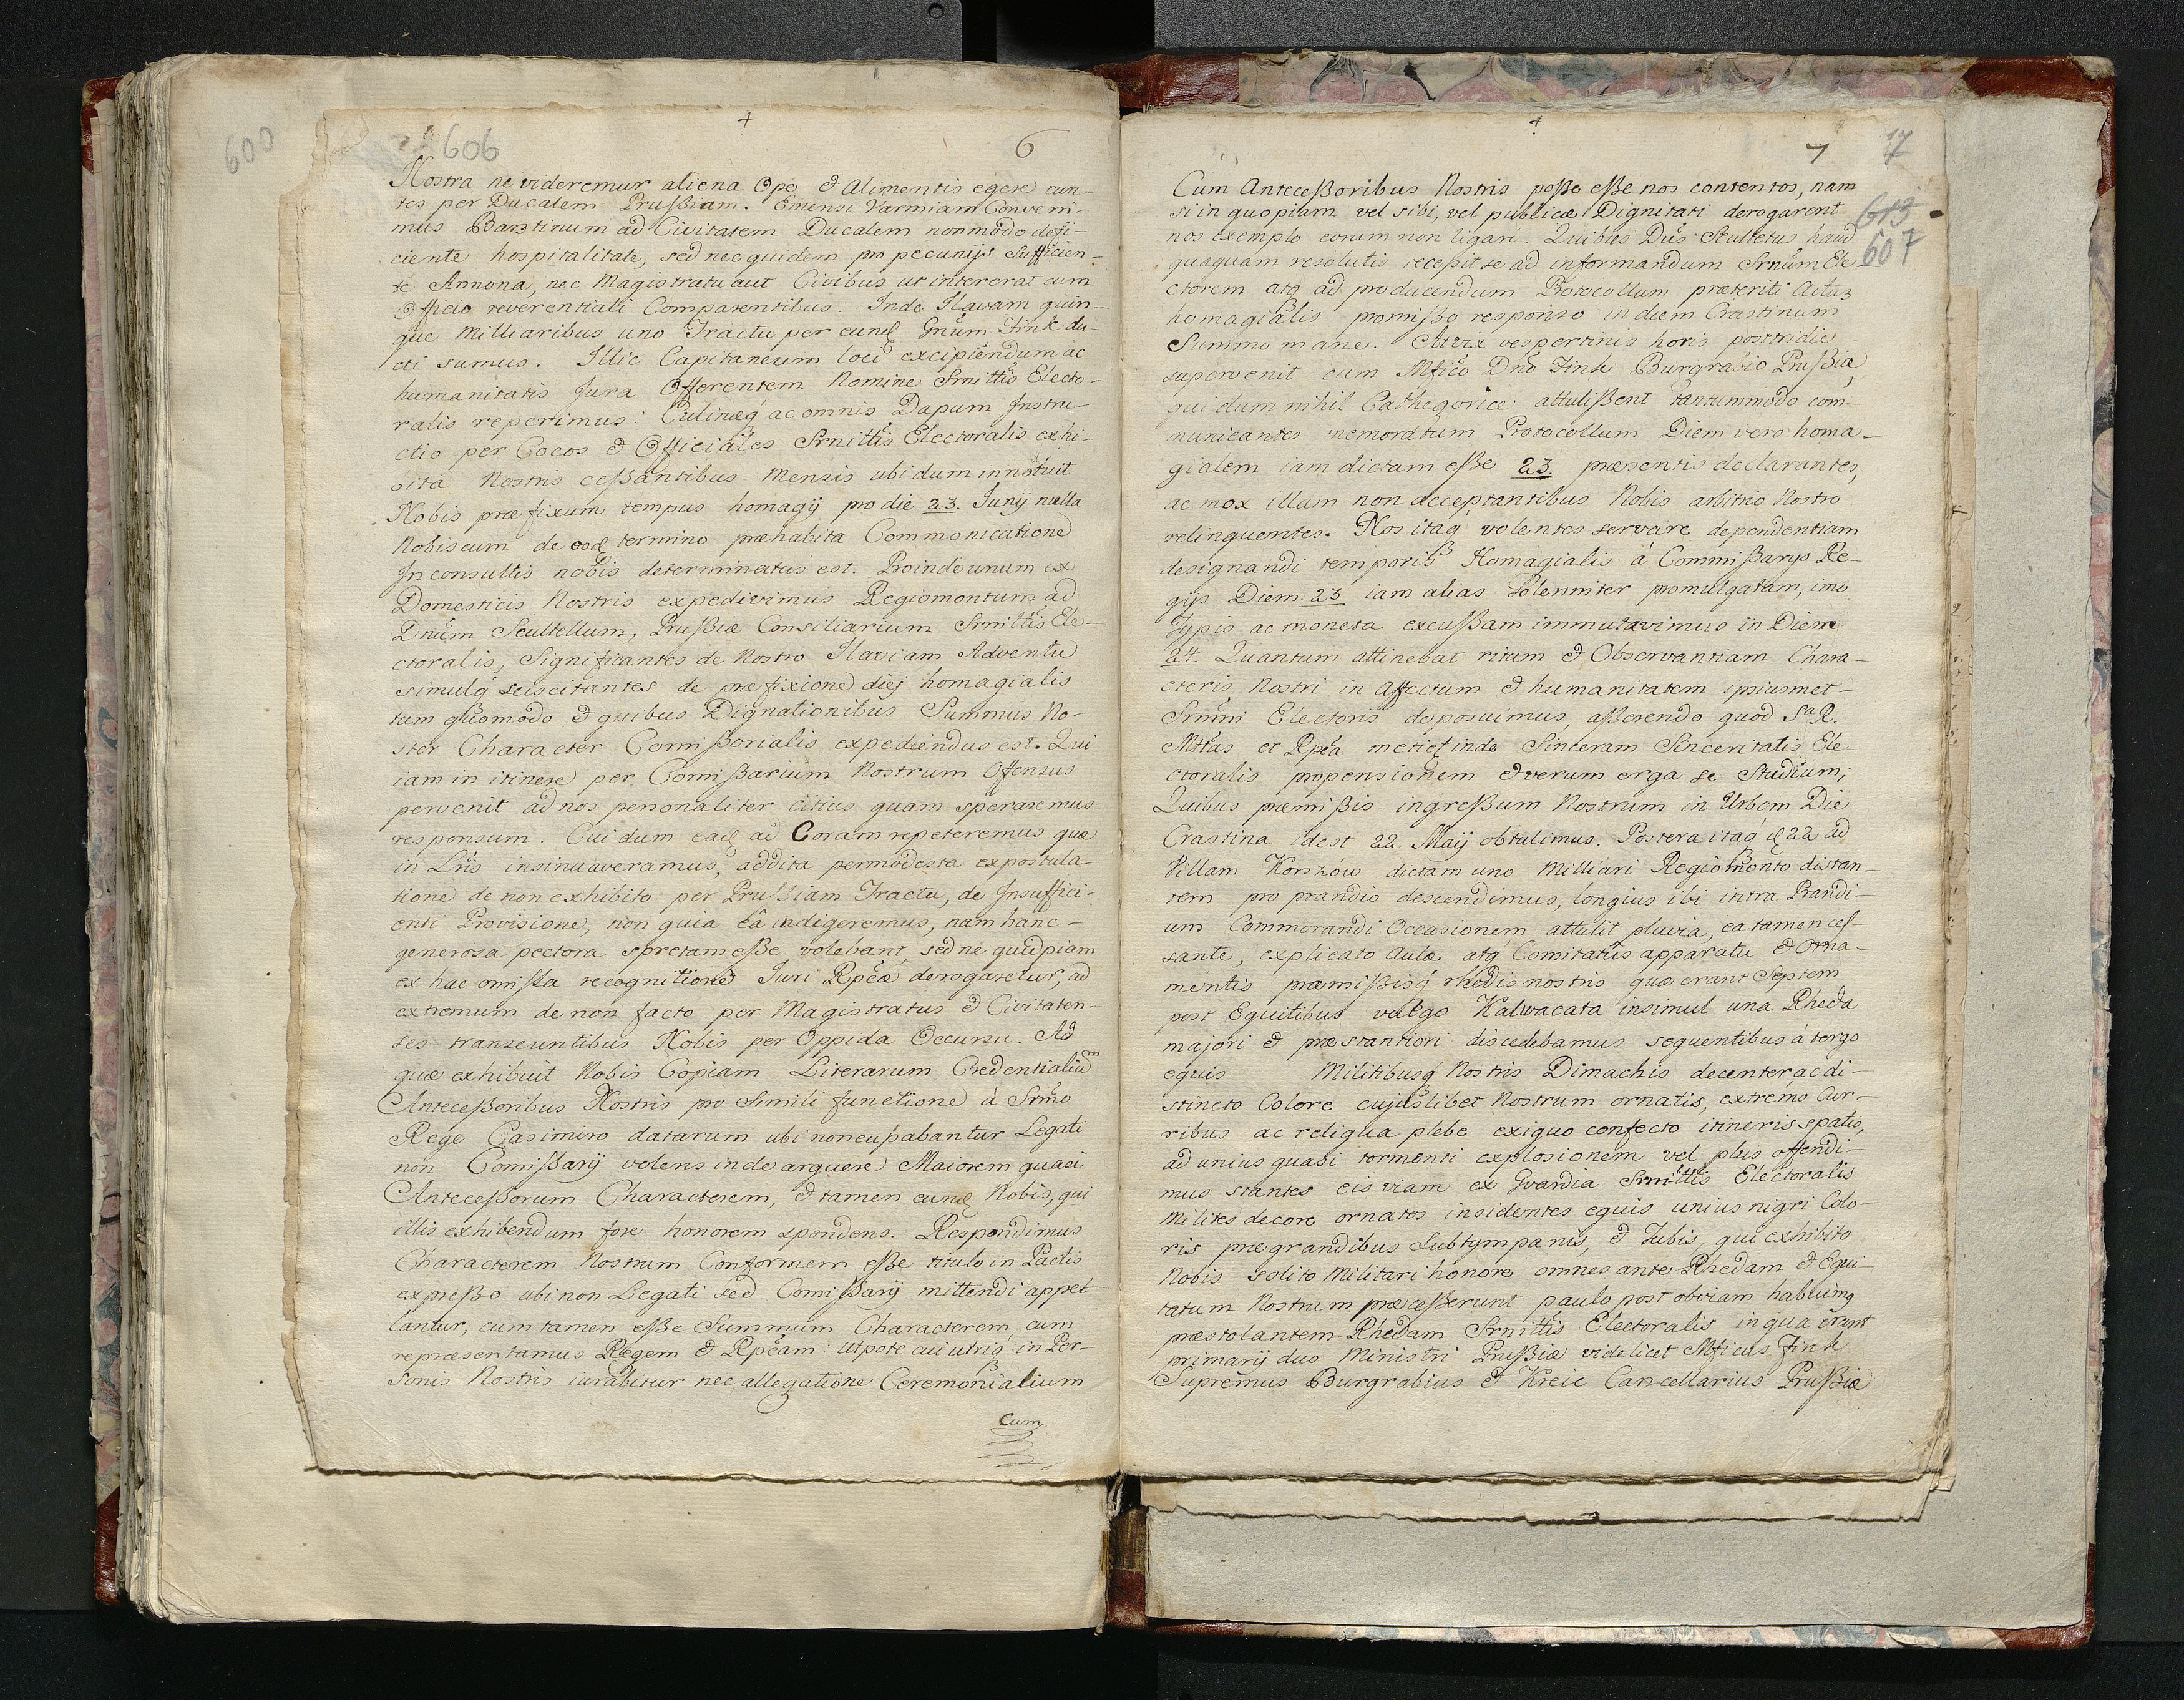 600
606
+
6
Nostra ne videremur aliena Ope & Alimentis egere eun-
tes per Ducalem Prußiam. Emensi Varmiam Conveni-
mus Barstinum ad Civitatem Ducalem non modo defi-
ciente hospitalitate, sed nec quidem pro pecunijs Sufficien-
te Annona, nec Magistratu aut Civibus ut intererat cum
Officio reverentiali Comparentibus. Inde Ilavam quin-
que Milliaribus uno Tractu per eund Gnũm Fink du-
cti sumus. Illic Capitaneum loci excipiendum ac
humanitatis Jura Offerentem Nomine Srnittis Electo-
ralis reperimus: Culinæq ac omnis Dapum Instru-
ctio per Cocos & Officiales Srnittis Electoralis exhi-
sita Nostris ceßantibus Mensis ubi dum innotuit
Nobis præfixum tempus homagij pro die 23. Junij nulla
Nobiscum de eod termino præhabita Commonicatione
Inconsultis nobis determinatus est. Proinde unum ex
Domesticis Nostris expedivimus Regiomontum ad
Dnũm Scultellum, Prußiæ Consiliarium Srnittis Ele-
ctoralis, Significantes de Nostro Ilaviam Adventu
simulq sciscitantes de præfixione diej homagialis
tum quomodo & quibus Dignationibus Summus No-
ster Character Comißorialis expediendus est. Qui
iam in itinere per Comißarium Nostrum Offensus
pervenit ad nos personaliter citius quam speraremus
responsum. Cui dum ead ad Coram repeteremus quæ
in Lris insinuaveramus, addita permodesta expostula-
tione de non exhibito per Prußiam Tractu, de Insuffici-
enti Provisione, non quia eâ indigeremus, nam hanc-
generosa pectora spretam eße volebant, sed ne quidpiam
ex hac omißa recognitione Juri Rpcæ derogaretur, ad
extremum de non facto per Magistratus & Civitaten-
ses transeuntibus Nobis per Oppida Occursu. Ad
quæ exhibuit Nobis Copiam Literarum Credentialiũm
Anteceßoribus Nostris pro Simili functione à Srmo
Rege Casimiro datarum ubi nuncupabantur Legati
non Comißarij volens inde arguere Maiorem quasi
Anteceßorum Characterem, & tamen eund Nobis, qui
illis exhibendum fore honorem spondens. Respondimus
Characterem Nostrum Conformem eße titulo in Pactis
expreßo ubi non Legati sed Comißarij mittendi appel
lantur, cum tamen eße Summum Characterem, cum
repræsentamus Regem & Rpcam: Utpote cui utriq in Per-
sonis Nostris iurabitur nec allegatione Ceremonialium
Cum
+
7
17
613
607
Cum Anteceßoribus Nostris poße eße nos contentos, nam
si in quopiam vel sibi, vel publicæ Dignitati derogarent
nos exemplo eorum non ligari. Quibus Dũs Scultetus haud
quaquam resolutis recepit se ad informandum Srnũm Ele-
ctorem atq ad producendum Protocollum præteriti Actus
homagialis promißo responso in diem Crastinum
Summo mane. Ast vix vespertinis horis postridie
supervenit cum Mfico Dno Fink Burgrabio Prußiæ,
qui dum nihil Cathegorice attulißent tantummodo com-
municantes memoratum Protocollum Diem vero homa-
gialem iam dictam eße 23. præsentis declarantes,
ac mox illam non acceptantibus Nobis arbitrio Nostro
relinquentes. Nos itaq volentes servare dependentiam
designandi temporis Homagialis à Commißarijs Re-
gijs Diem 23 iam alias Solenniter promulgatam, imo
Typis ac moneta excußam immutavimus in Diem
24. Quantum attinebat ritum & Observantiam Chara-
cteris Nostri in Affectum & humanitatem ipsiusmet-
Srnũni Electoris deposuimus, aßerendo quod Sa R.
Mttas et Rpca metiet inde Sinceram Sinceritatis Ele
ctoralis propensionem & verum erga se Studium;
Quibus præmißis ingreßum Nostrum in Urbem Die
Crastina idest 22 Maij obtulimus. Postera itaq d 22 ad
Villam Korszów dictam uno Milliari Regiomonto distan-
tem pro prandio descendimus, longius ibi intra Prandi-
um Commorandi Occasionem attulit pluvia, ea tamen ces-
sante, explicato Aulæ atq Comitatus apparatu & Orna-
mentis præmißisq rhedis nostris quæ erant Septem
post Equitibus vulgo Kalwacata insimul una Rheda
majori & præstantiori discedebamus sequentibus à tergo
equis Militibusq Nostris Dimachis decenter, ac di-
stincto Colore cujuslibet Nostrum ornatis, extremo Cur-
ribus ac reliqua plebe exiguo confecto itineris spatio,
ad unius quasi tormenti explosionem vel plus offendi-
mus stantes eis viam ex Gvardia Srnittis Electoralis
Milites decore ornatos insidentes equis unius nigri Colo-
ris prægrandibus Subtympanis, & Tubis, qui exhibito
Nobis solito Militari honore omnes ante Rhedam & Equi-
tatum Nostrum præceßerunt paulo post obviam habuimq
præstolantem Rhedam Srnittis Electoralis in qua erant
primarij duo Ministri Prußiæ videlicet Mficus Fink
Supremus Burgrabius & Kreic Cancellarius Prußiæ